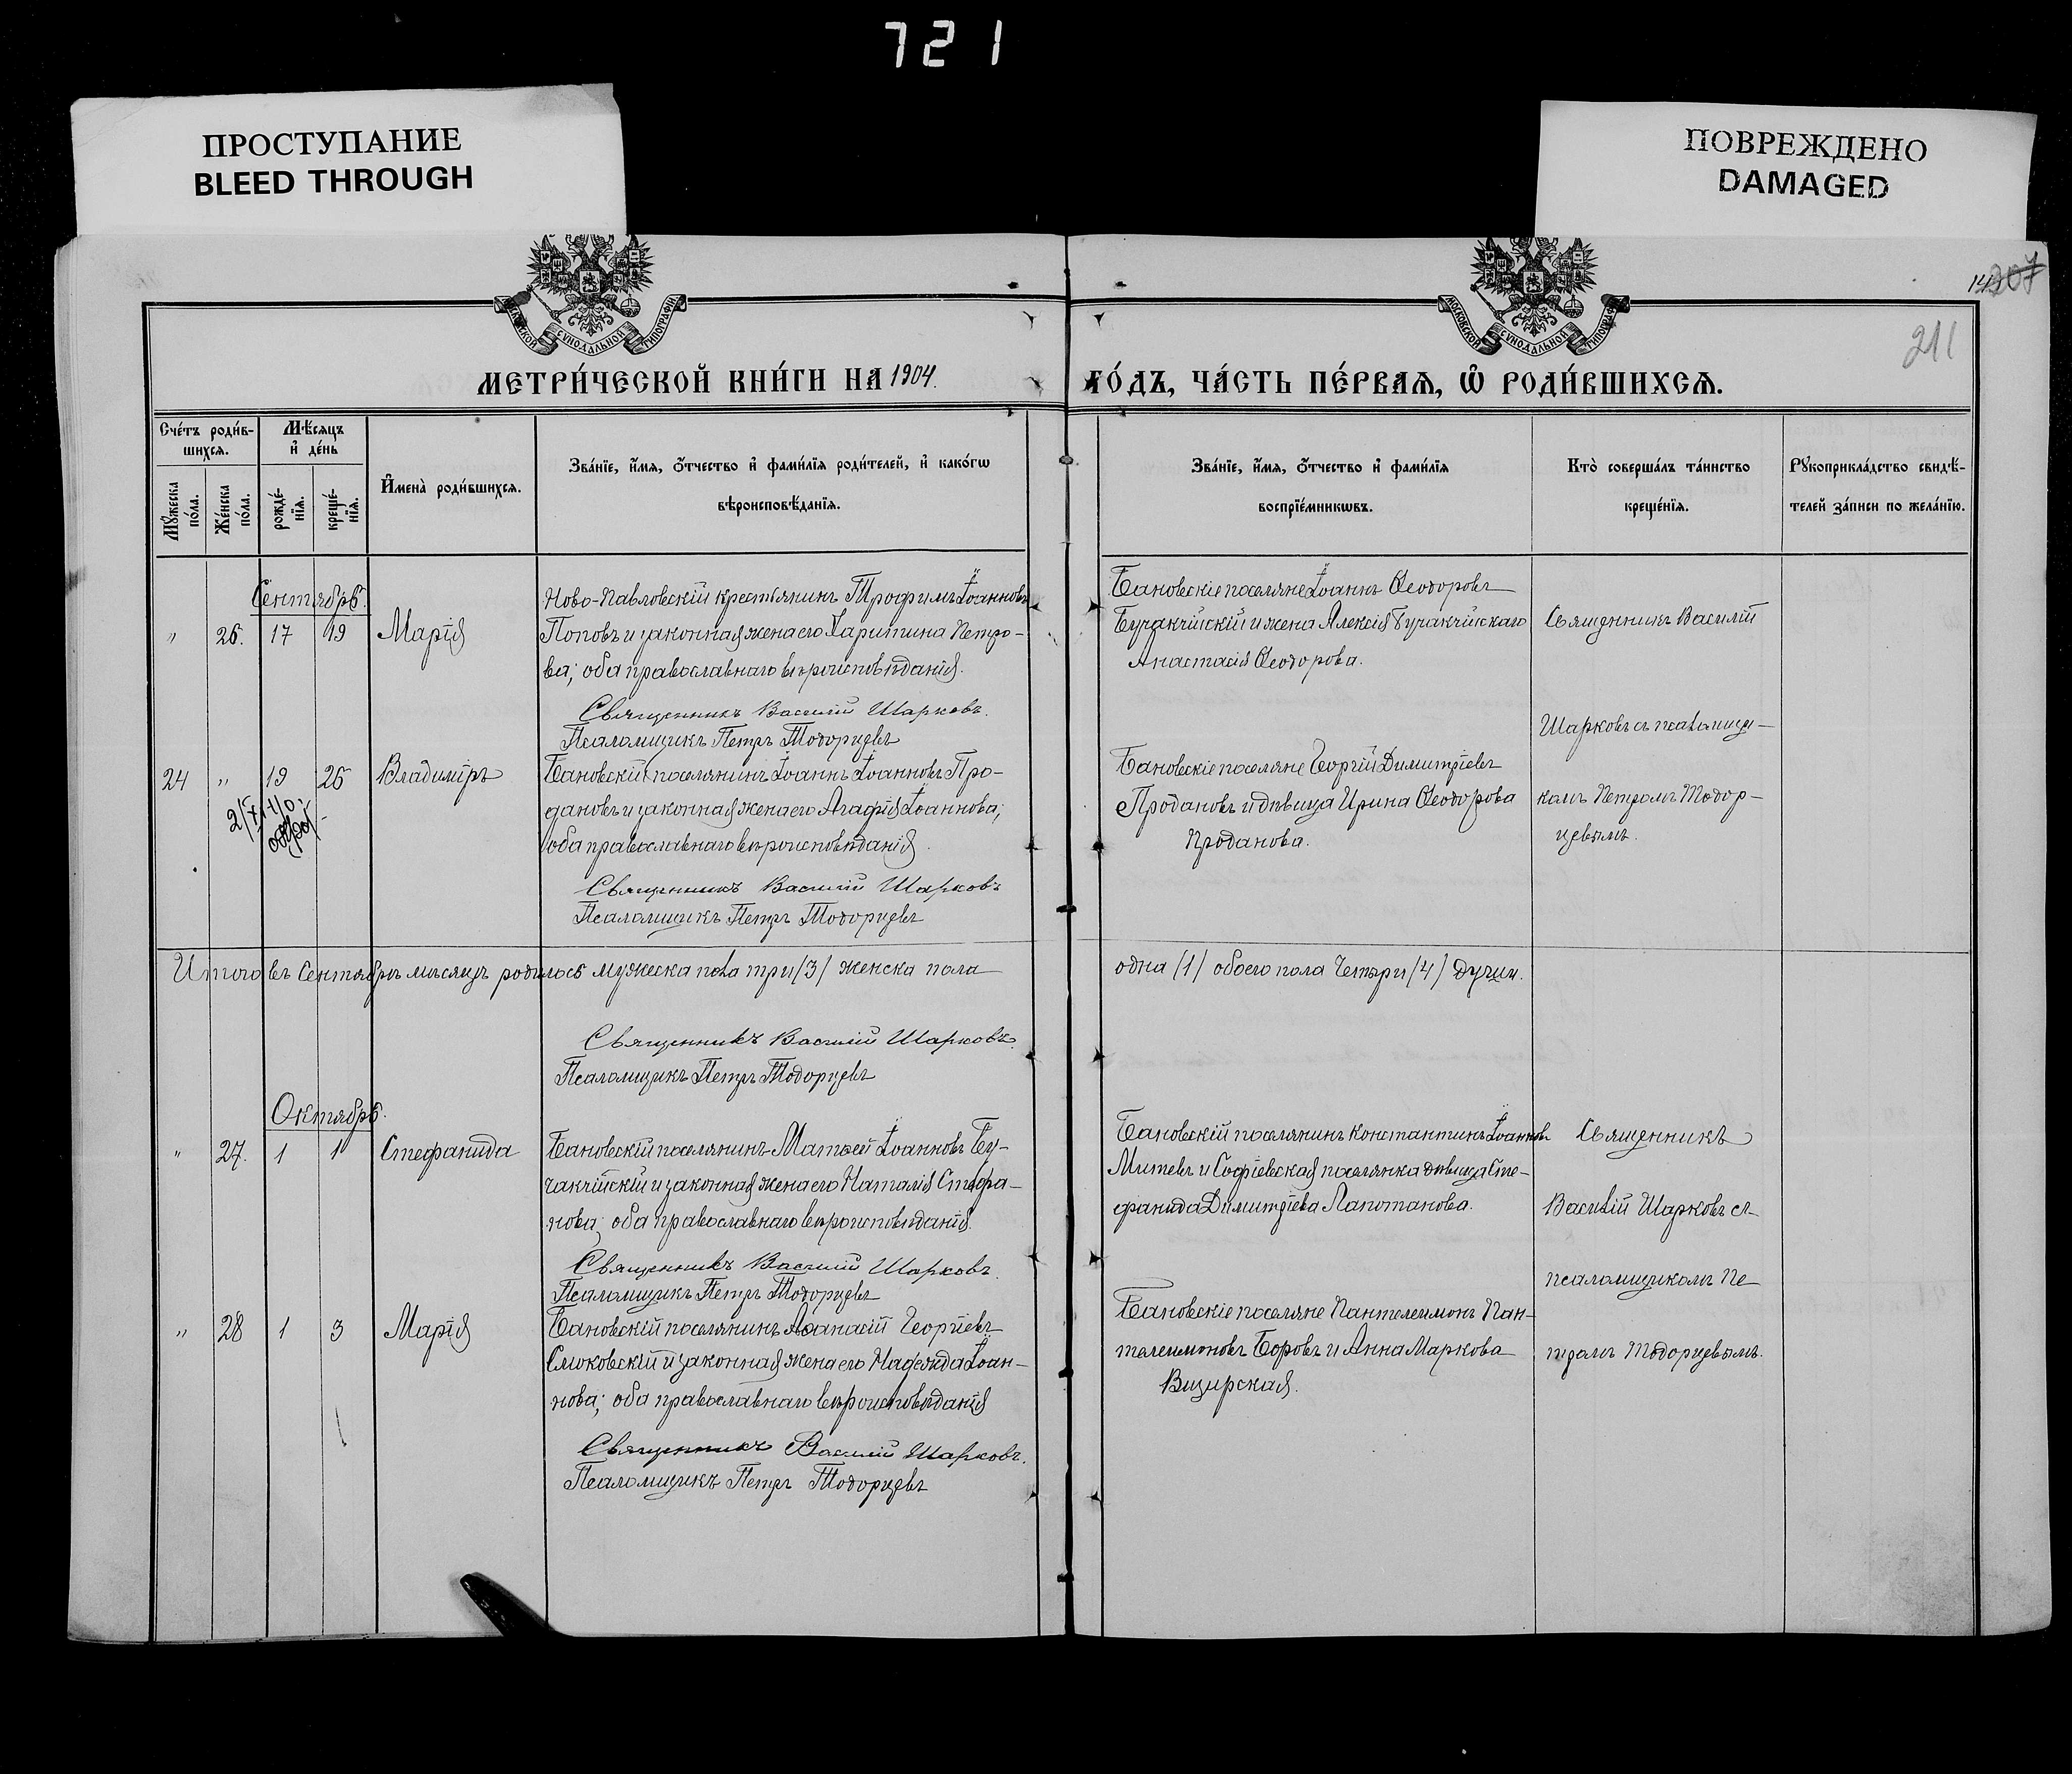 721
ПРОСТУПАНИЕ
BLEED THROUGH
ПОВРЕЖДЕНО
DAMAGED
МОСКОВСКОЙ СѴНОДАЛЬНОЙ ТИПОГРАФІИ
МОСКОВСКОЙ СѴНОДАЛЬНОЙ ТИПОГРАФІИ
207
211
МЕТРИ́ЧЕСКОЙ КНИ́ГИ НА 1904.
ГО́ДЪ, ЧА́СТЬ ПЕ́РВАѦ, Ѡ҆ РОДИ́ВШИХСѦ.
Сче́тъ роди́в-
шихся.
Мѣ́сяцъ
и҆ де́нь
Мꙋ́жеска
по́ла.
Же́нска
по́ла.
рожде́-
нїя.
креще́-
нїя.
И҆мена̀ роди́вшихся.
Зва́нїе, и҆́мя, ѻ҆́тчество и҆ фами́лїя роди́телей, и҆ како́гѡ
вѣроисповѣ́данїя.
Зва́нїе, и҆́мя, ѻ҆́тчество и҆ фами́лїя
воспрїе́мникѡвъ.
Кто̀ соверша́лъ та́инство
креще́нїя.
Рꙋкоприкла́дство свидѣ́-
телей за́писи по жела́нїю.
Сентябрь.
" 26. 17 19 Марія
Ново-Павловскій крестьянинъ Трофимъ Іоанновъ
Поповъ и законная жена его Харитина Петро-
ва; оба православнаго вѣроисповѣданія.
Священникъ Василій Шарковъ.
Псаломщикъ Петръ Тодорцевъ
Бановскіе поселяне Іоаннъ Ѳеодоровъ
Бучакчійскій и жена Алексія Бучакчійскаго
Анастасія Ѳеодорова.
Священникъ Василій
Шарковъ съ псаломщи-
комъ Петромъ Тодор-
цевымъ.
24 " 19 26 Владиміръ
Бановскій поселянинъ Іоаннъ Іоанновъ Про-
дановъ и законная жена его Агафія Іоаннова;
оба православнаго вѣроисповѣданія.
Священникъ Василій Шарковъ
Псаломщикъ Петръ Тодорцевъ
Бановскіе поселяне Георгій Димитріевъ
Продановъ и дѣвица Ирина Ѳеодорова
Проданова.
Итого въ Сентябрѣ мѣсяцѣ родилось мужеска пола три /3/ женска пола
одна /1/ обоего пола Четыри /4/ души.
Священникъ Василій Шарковъ.
Псаломщикъ Петръ Тодорцевъ
Октябрь.
" 27. 1 1 Стефанида
Бановскій поселянинъ Матѳей Іоанновъ Бу-
чакчійскій и законная жена его Наталія Стефа-
нова; оба православнаго вѣроисповѣданія.
Священникъ Василій Шарковъ.
Псаломщикъ Петръ Тодорцевъ
Бановскій поселянинъ Константинъ Іоаннов
Митевъ и Софіевская поселянка дѣвица Сте-
фанида Димитріева Лапотанова.
Священникъ
Василій Шарковъ съ
псаломщикомъ Пе
тромъ Тодорцевымъ.
" 28 1 3 Марія
Бановскій поселянинъ Аѳанасій Георгіевъ
Смоковскій и законная жена его Надежда Іоан-
нова; оба православнаго вѣроисповѣданія
Священникъ Василій Шарковъ.
Псаломщикъ Петръ Тодорцевъ
Бановскіе поселяне Пантелеимонъ Пан-
телеимоновъ Боровъ и Анна Маркова
Визирская.